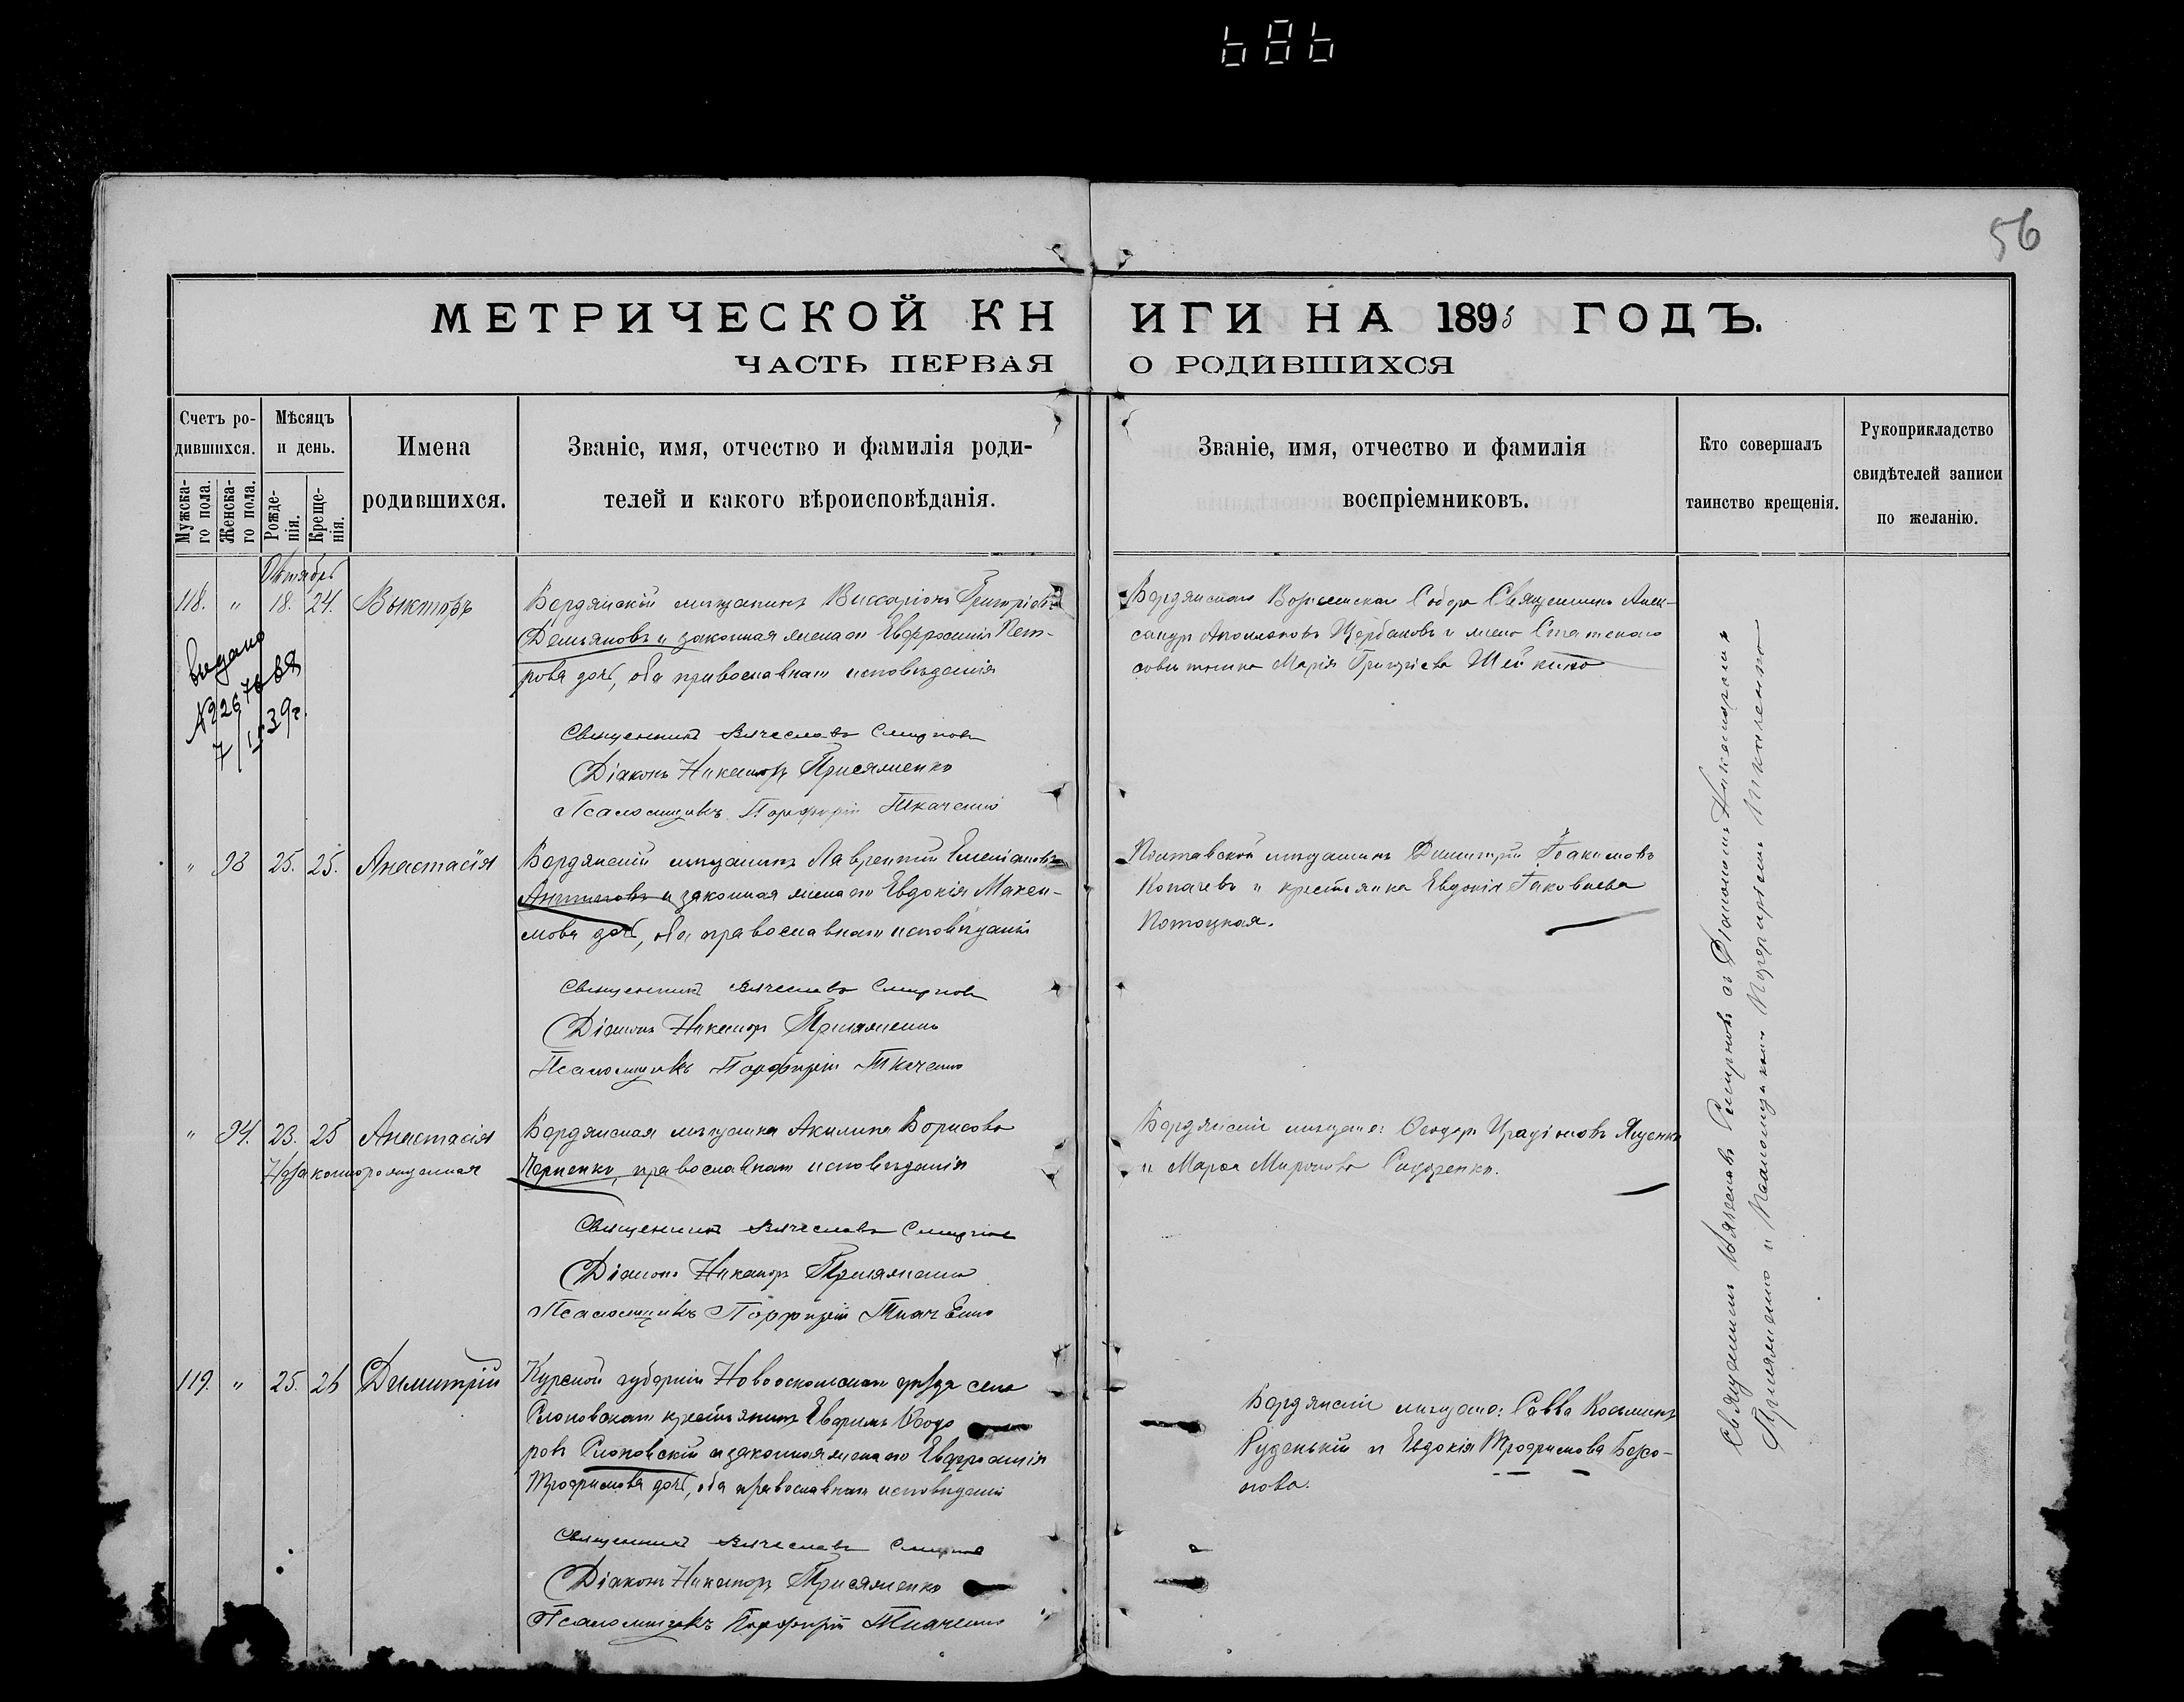 686
56
МЕТРИЧЕСКОЙ КНИГИ НА 1895 ГОДЪ.
ЧАСТЬ ПЕРВАЯ О РОДИВШИХСЯ
Счетъ родившихся.
Мужска-го пола.
Женска-го пола.
Мѣсяцъ и день.
Рожде-нія.
Креще-нія.
Имена родившихся.
Званіе, имя, отчество и фамилія роди-
телей и какого вѣроисповѣданія.
Званіе, имя, отчество и фамилія
воспріемниковъ.
Кто совершалъ
таинство крещенія.
Рукоприкладство
свидѣтелей записи
по желанію.
Октябрь
118. " 18. 24. Викторъ
Выдано
Бердянскій мѣщанинъ Виссаріонъ Григоріевъ
Демьяновъ и законная жена его Евфросинія Пет-
рова дочь, оба православнаго исповѣданія
Священникъ Вячеславъ Смирновъ
Діаконъ Никаноръ Присяженко
Псаломщикъ Порфирій Ткаченко
Бердянскаго Вознесенскаго Собора Священникъ Алек-
сандръ Щербаковъ и жена Статскаго
совѣтника Марія Григоріева
" 93 25. 25. Анастасія
Бердянскій мѣщанинъ Лаврентій Емеліановъ
Антиповъ и законная жена его Евдокія Макси-
мова дочь, оба православнаго исповѣданія
Священникъ Вячеславъ Смирновъ
Діаконъ Никаноръ Присяженко
Псаломщикъ Порфирій Ткаченко
Полтавской мѣщанинъ Димитрій Іоакимовъ
Копачевъ и крестьянка Евдокія Іаковлева
Потоцкая.
" 94. 23. 25 Анастасія
Незаконнорожденная
Бердянская мѣщанка Акилина Борисова
православнаго исповѣданія
Священникъ Вячеславъ Смирновъ
Діаконъ Никаноръ Присяженко
Псаломщикъ Порфирій Ткаченко
Бердянскій мѣщане: Ѳеодоръ Иродіоновъ Яценко
и Марѳа Миронова Сидоренко.
119. " 25. 26 Димитрій
Курской губерніи Новооскольскаго уѣзда села
Слоновскаго крестьянинъ Евфимъ Ѳеодо
ровъ Слоновскій и законная жена его Евфросинія
Трофимова дочь, оба православнаго исповѣданія
Священникъ Вячеславъ Смирновъ
Діаконъ Никаноръ Присяженко
Псаломщикъ Порфирій Ткаченко
Бердянскіе мѣщане: Савва Косьминъ
Руденькій и Евдокія Трофимова
Священникъ Вячеславъ Смирновъ съ Діакономъ Никаноромъ
Присяженко и Псаломщикомъ Порфиріемъ Ткаченко